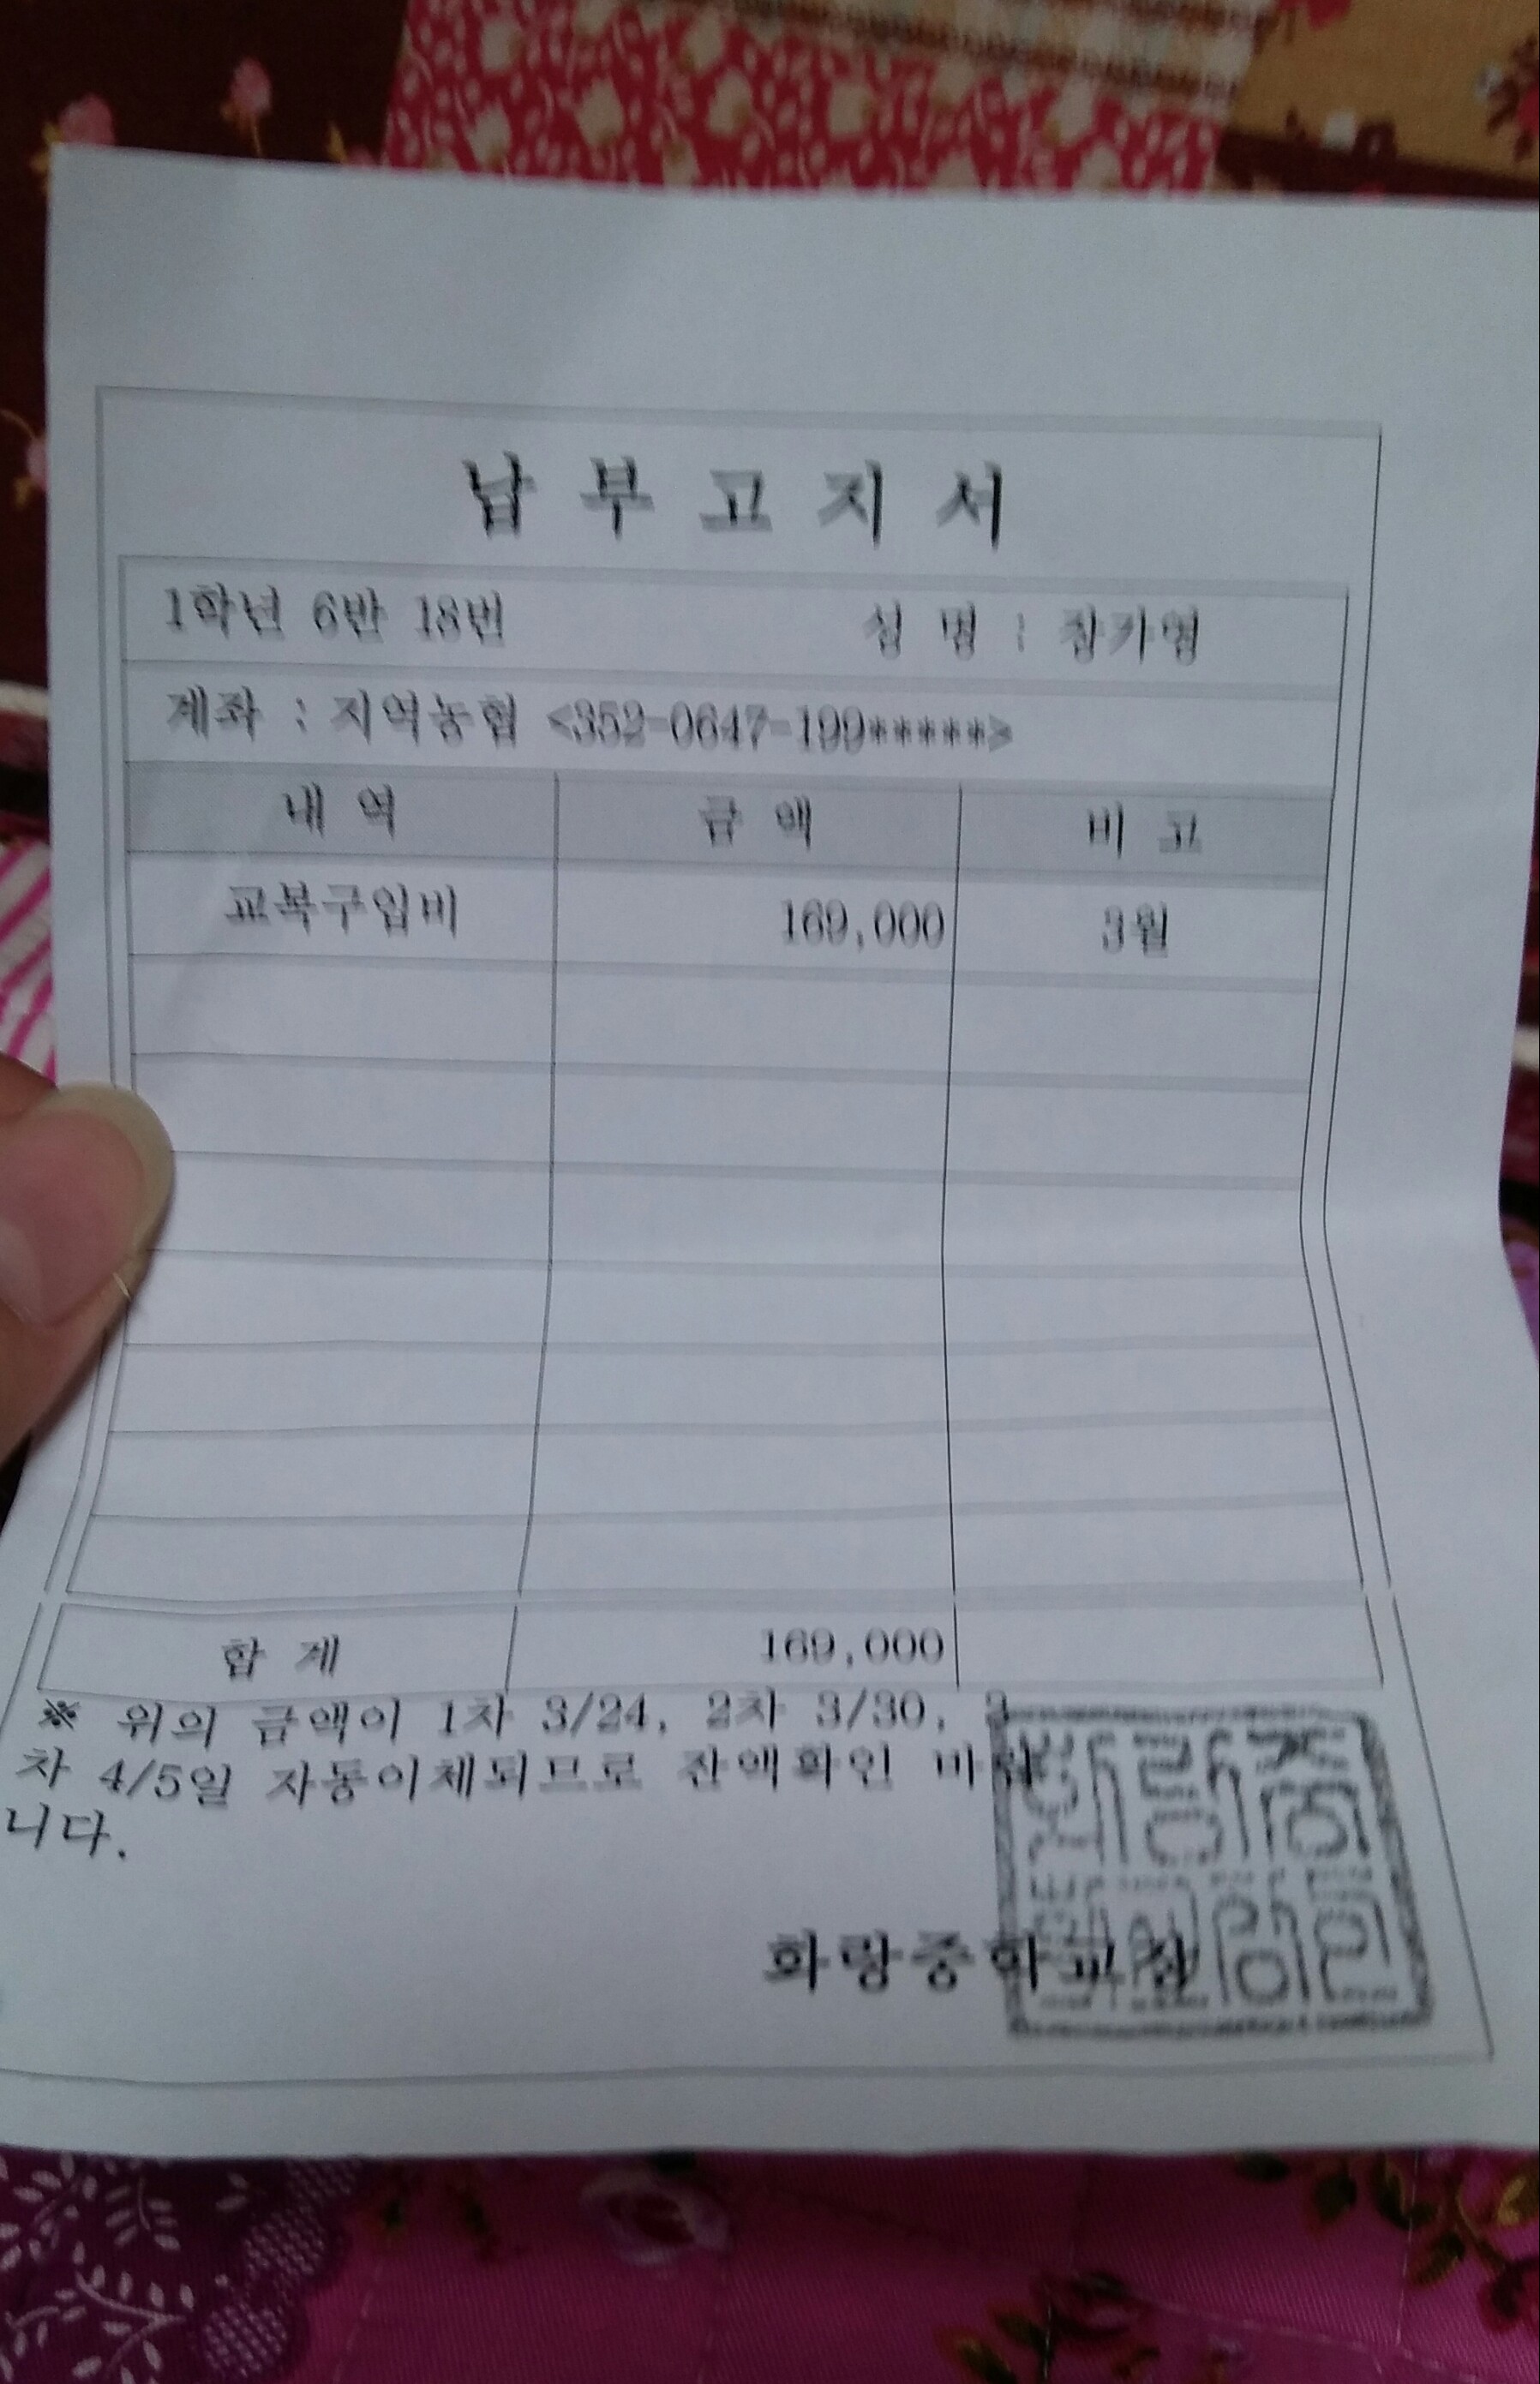 납 부 고 지 서
1학년 6반 18번 성 명 : 장가영
계좌 : 지역농협 <352-0647-199*****>
내 역 금 액 비 고
교복구입비 169,000 3월
합 계 169,000
※ 위의 금액이 1차 3/24, 2차 3/30, 3
차 4/5일 자동이체되므로 잔액확인 바랍
니다.
화랑중학교장